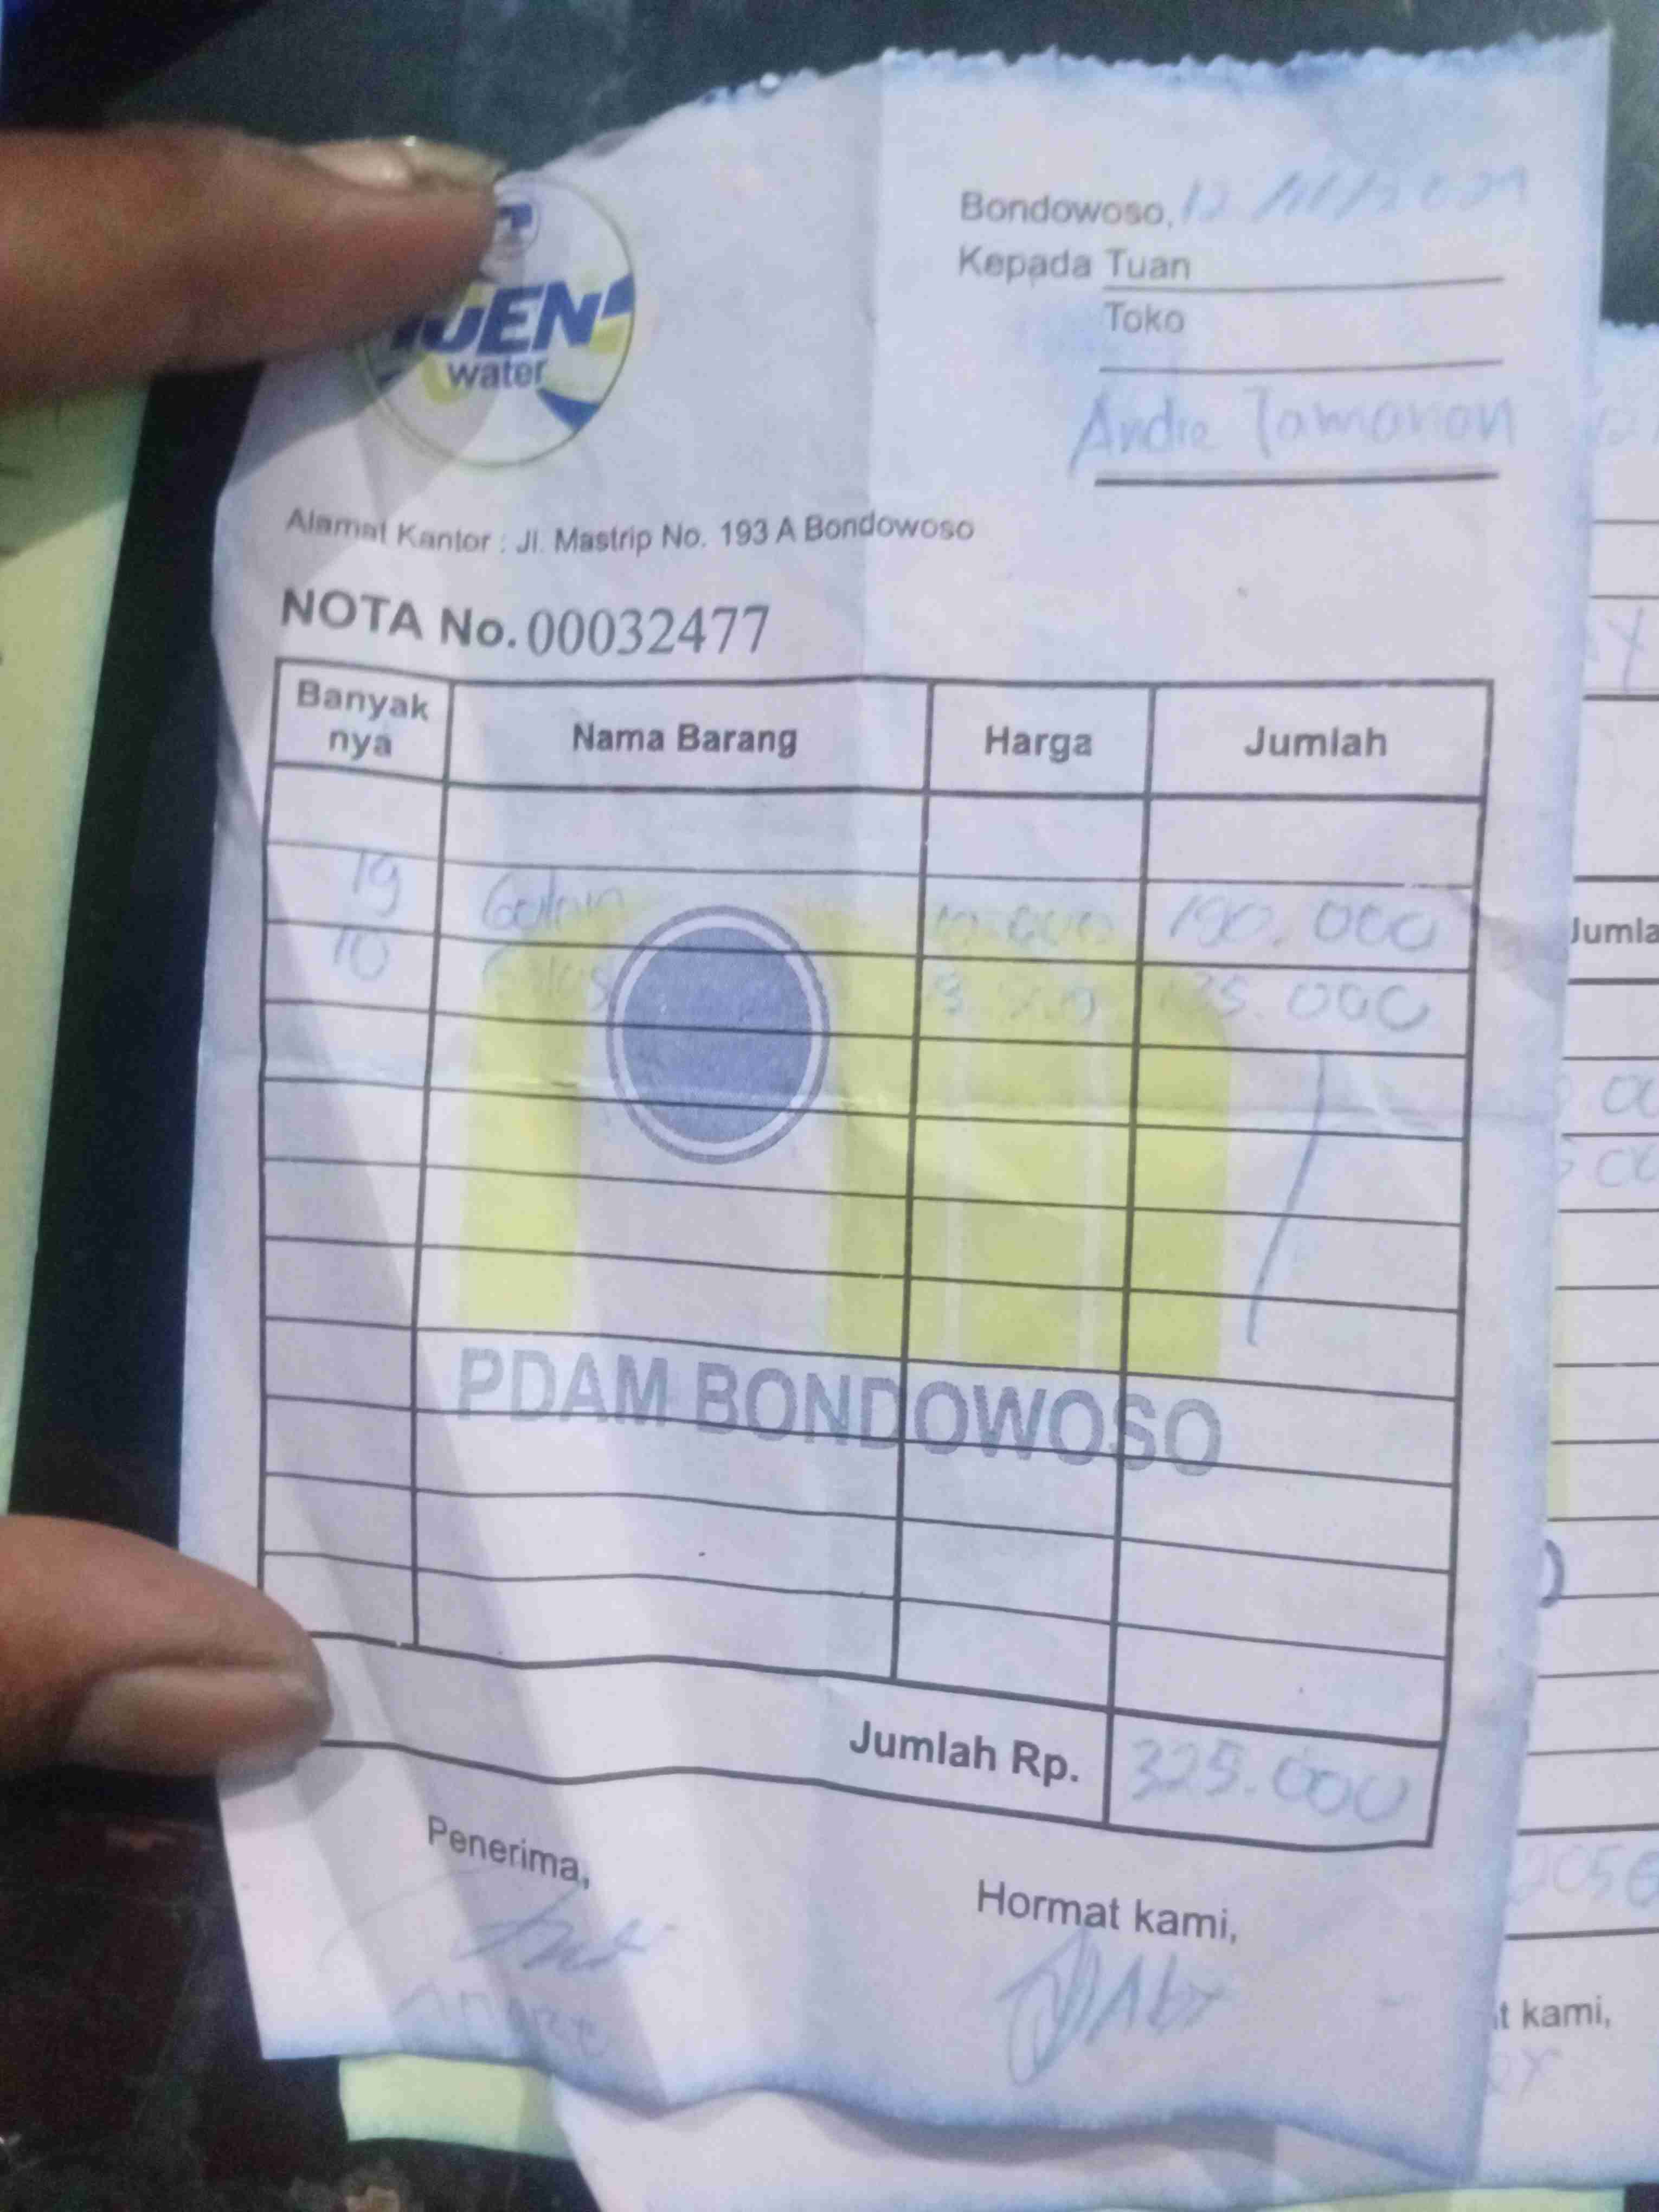 JEN
water
Bondowoso, 12
Kepada Tuan
Toko
Andre Tamanan
Alamat Kantor : Jl. Mastrip No. 193 A Bondowoso
NOTA No. 00032477
Banyak nya Nama Barang Harga Jumlah
19 Galon 10.000 190.000
10 .000
PDAM BONDOWOSO
Jumlah Rp. 325.000
Penerima,
Hormat kami,
Jumla
t kami,